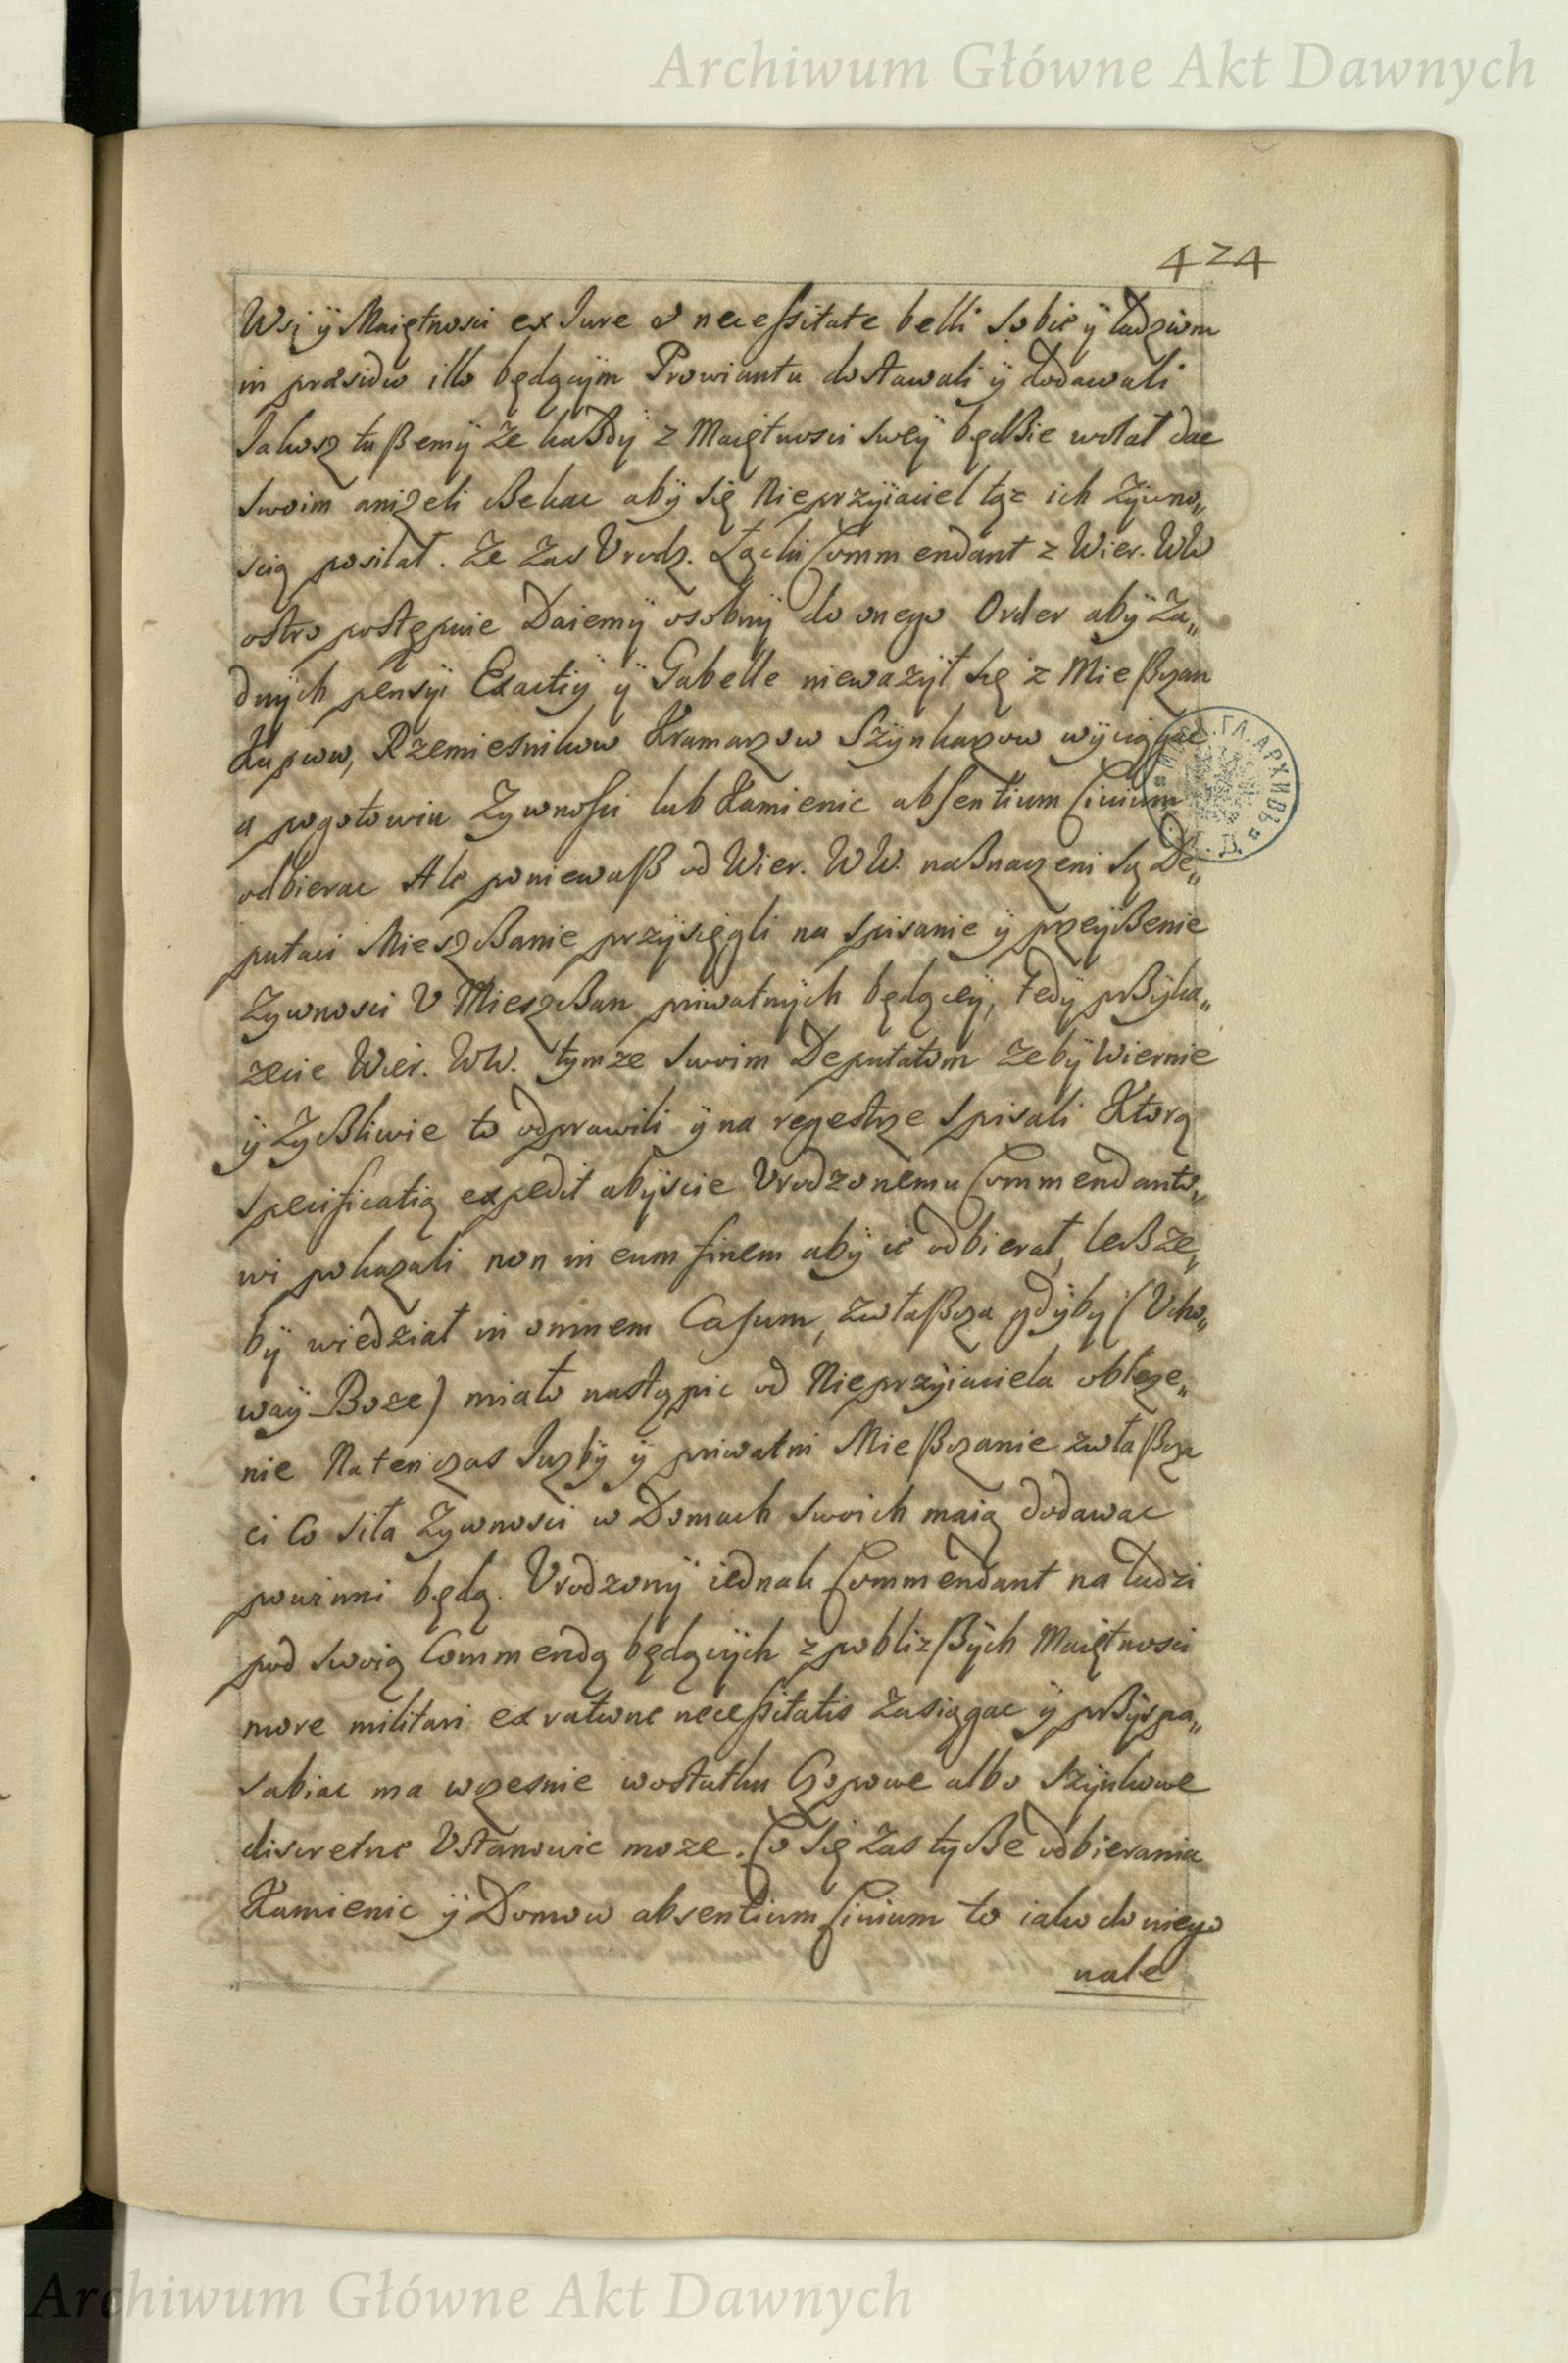 Archiwum Główne Akt Dawnych
424
Wsi ÿ Maiętnosci ex Iure & necessitate belli sobie ÿ ludziom
in præsidio illo będącÿm Prowiantu dostawali ÿ dodawali
Iakosz tußemÿ że każdÿ z Maiętnosci sweÿ będzie wolał dac
swoim aniżeli czekac abÿ się Nieprzÿiaciel tąż ich Zÿwno„
scią posilał. Ze zas Vrodz. Łącki Commendant z Wier. WW
ostro postępuie Daiemÿ osobnÿ do onego Order abÿ ża„
dnÿch pensÿi Exactiÿ ÿ Gabelle nieważÿł się z Mießczan
Kupcow, Rzemiesnikow Kramarzow Szÿnkarzow wÿciągac
a pogotowiu Zywnosci lub Kamienic absentium Civium
odbierac Ale ponieważ od Wier. WW. naznaczeni są De„
putaci Mieszczanie przÿsięgli na spisanie ÿ przeÿrzenie
Zywnosci V Mieszczan priwatnÿch będąceÿ, Tedÿ przÿka„
zecie Wier. WW. tymże swoim Deputatom żebÿ Wiernie
ÿ Zyczliwie to odprawili ÿ na regestrze spisali Ktorą
specificatią expedit abÿscie Vrodzonemu Commendanto„
wi pokazali non in eum finem abÿ ie odbierał, lecz że„
bÿ wiedział in omnem Casum, zwłaßcza gdÿbÿ (Vcho„
waÿ Boże) miało nastąpic od Nieprzÿiaciela obleże„
nie Natenczas Iużbÿ ÿ priwatni Mießczanie zwłaßcza
ci co siła Zywnosci w Domach swoich maią dodawac
powinni będą. Vrodzonÿ iednak Commendant na ludzi
pod swoią Commendą będącÿch z poblizßÿch Maiętnosci
more militari ex ratione necessitatis zasiągac ÿ przÿspa„
sabiac ma wczesnie wostatku Czopowe albo Szÿnkowe
discretne Vstanowic może. Co się zas tycze odbierania
Kamienic ÿ Domow absentium Civium to iako do niego
nale
Archiwum Główne Akt Dawnych